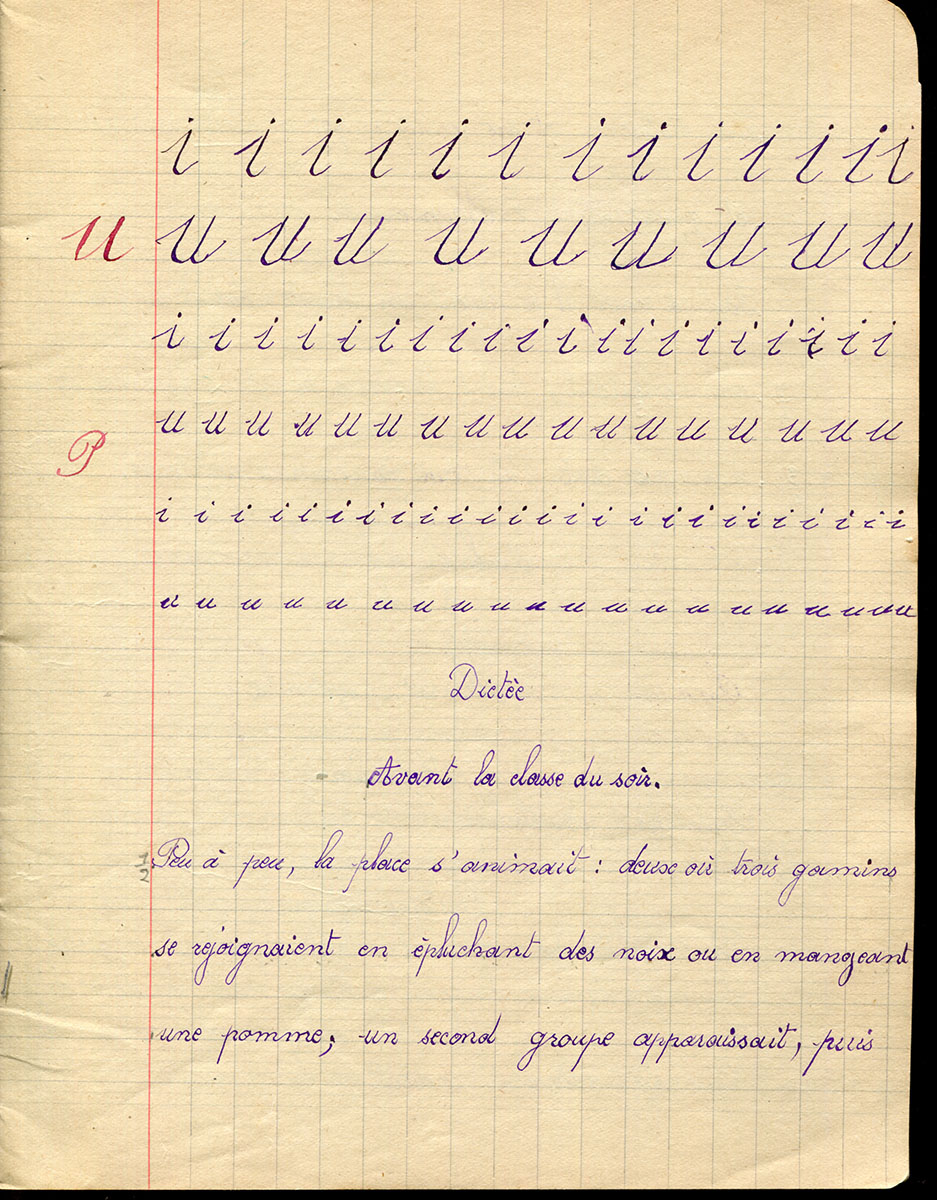 i i i i i i i i i i i i i
u u u u u u u u u u
i i i i i i i i i i i i i i i i i i i i
u u u u u u u u u u u u u u u u u
P
i i i i i i i i i i i i i i i i i i i i i i i i i
u u u u u u u u u u u u u u u u u u u u
Dictèe
Avant la classe du soir.
1/2 Peu à peu, la place s'animait : deux où trois gamins
se rejoignaient en èpluchant des noix ou en mangeant
une pomme; un second groupe apparaissait, puis